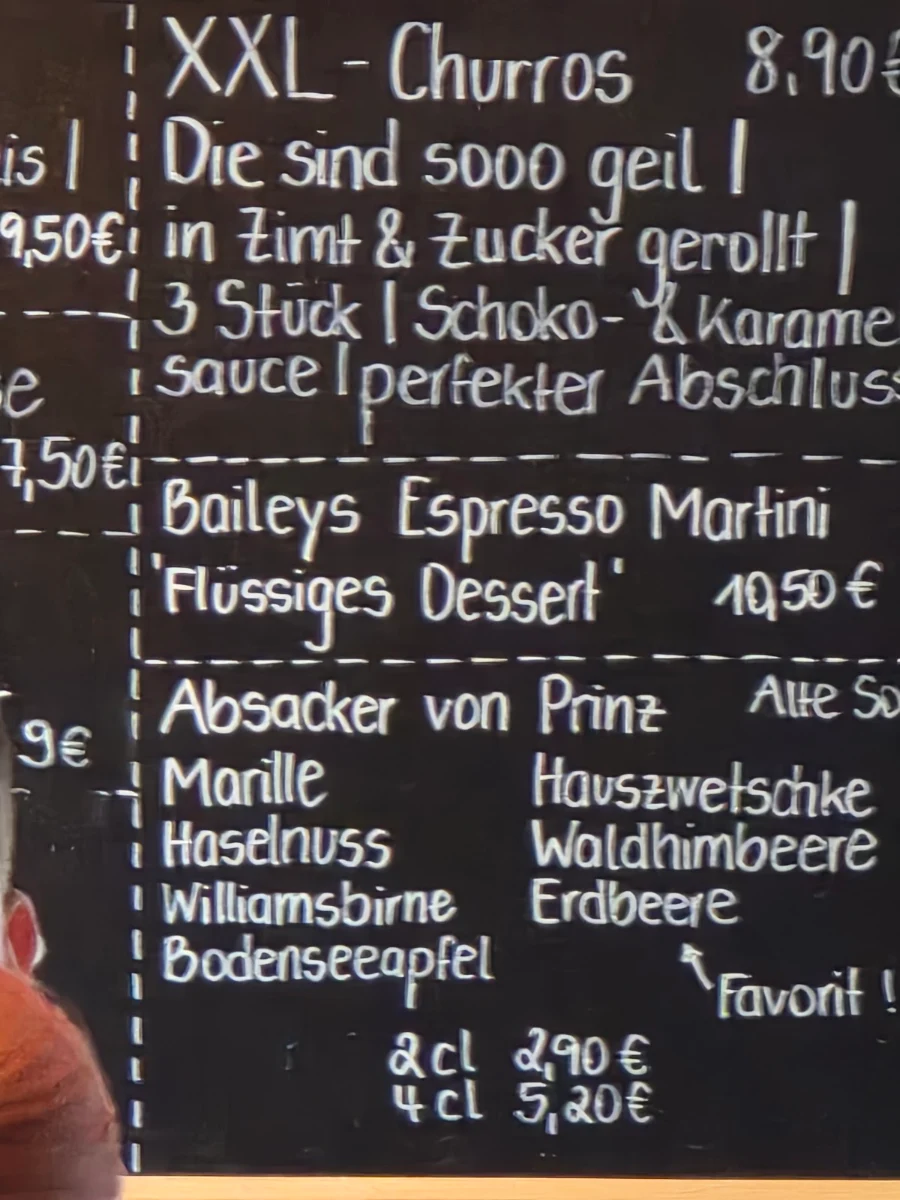 is |
9,50€
7,50€
9€
XXL - Churros 8.90€
Die sind sooo geil |
in Zimt & Zucker gerollt |
3 Stück | Schoko- & Karame
sauce | perfekter Abschluss
Baileys Espresso Martini
'Flüssiges Dessert' 10,50 €
Absacker von Prinz Alte So
Marille Hauszwetschke
Haselnuss Waldhimbeere
Williamsbirne Erdbeere
Bodenseeapfel
Favorit !
2 cl 2,90 €
4 cl 5,20€